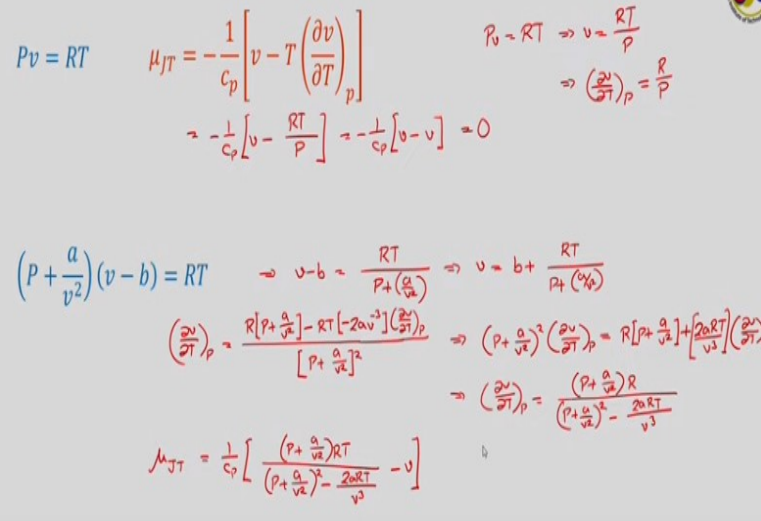 Pv = RT
μ_JT = -1/c_p [v - T(∂v/∂T)_p]
Pv = RT ⇒ v = RT/P
⇒ (∂v/∂T)_P = R/P
= -1/c_p [v - RT/P] = -1/c_p [v - v] = 0
(P + a/v²)(v - b) = RT
⇒ v-b = RT/(P+(a/v²)) ⇒ v = b + RT/(P+(a/v²))
(∂v/∂T)_P = (R[P+a/v²] - RT[-2av⁻³](∂v/∂T)_P)/[P+a/v²]² ⇒ (P+a/v²)²(∂v/∂T)_P = R[P+a/v²]+[2aRT/v³](∂v/∂T)
⇒ (∂v/∂T)_P = (P+a/v²)R/((P+a/v²)² - 2aRT/v³)
μ_JT = 1/c_p [(P+a/v²)RT/((P+a/v²)² - 2aRT/v³) - v]